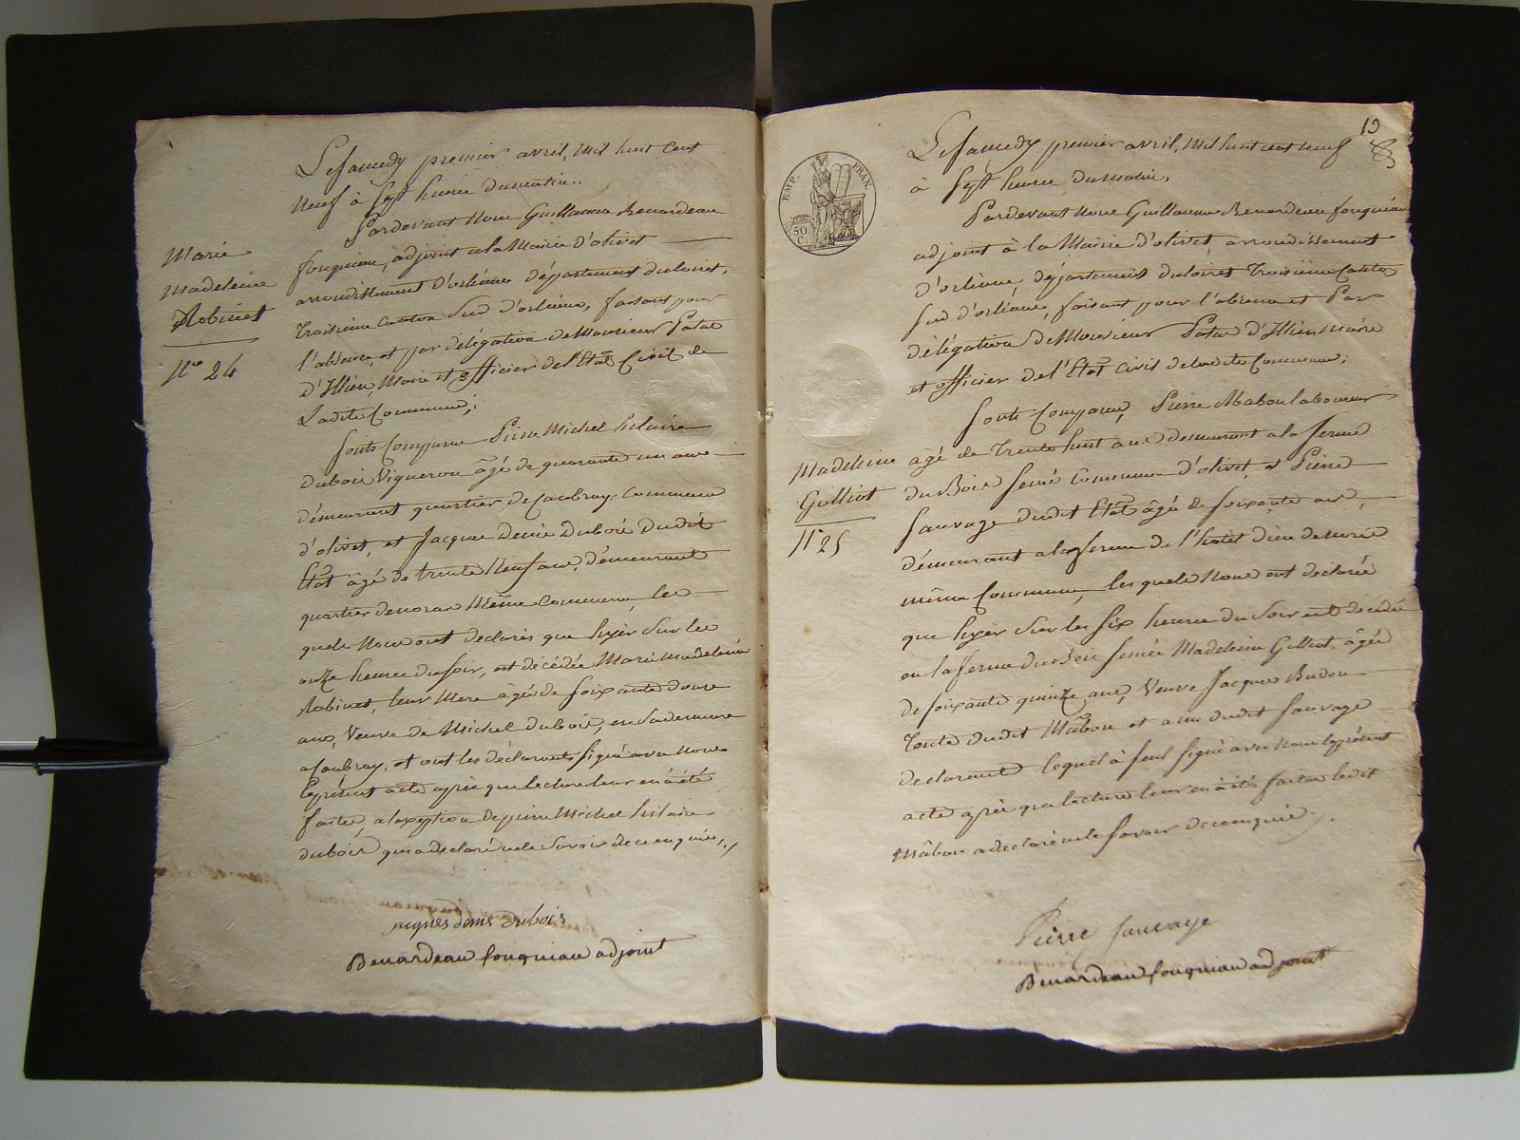 Marie
Madeleine
Robinet
N° 24
Le samedy premier avril, mil huit cent
neuf à sept heures du matin..
Pardevant nous Guillaume Benardeau
fouqueau, adjoint a la Mairie d'olivet
arrondissement d'orléans département du loiret,
troisieme canton Sud d'orléans, faisant pour
l'absence, et par délégation de Monsieur Patas
d'Illiers, Maire et officier de l'Etat Civil de
Ladite Commune;
sont Comparus Pierre Michel hilaire
dubois Vigneron âgé de quarante un ans
démeurant quartier de Caubray, Commune
d'olivet, et Jacques Denis Dubois dudit
Etat âgé de trente neuf ans, démeurant
quartier Même Commune, les
quels Nous ont declarés que hyer Sur les
onze heures du soir, est décédée Marie Madeleine
Robinet, leur Mere âgée de soixante douze
ans, Veuve de Michel dubois, en sa demeure
a Caubray, et ont les déclarants signé avec nous
le présent acte après que lecture leur en à été
faite, a l'exeption de pierre Michel hilaire
dubois, qui a declaré ne le savoir de ce enquis.
Jacques denis Dubois
Benardeau fouqueau adjoint
EMP. FRAN.
50
C.
Madeleine
Gilliot
N° 25
Le samedy premier avril, mil huit cent neuf
à sept heures du matin,
Pardevant nous Guillaume Benardeau fouqueau
adjoint à la Mairie d'olivet, arrondissement
d'orléans, département du loiret Troisième Canton
sud d'orléans, faisant pour l'absence et Par
délégation de Monsieur Patas d'Illiers maire
et officier de l'Etat Civil de ladite Commune;
sont Comparus, Pierre Mabou laboureur
agé de Trente huit ans demeurant a la ferme
du Bois semé Commune d'olivet, et Pierre
Sauvage dudit Etat âgé de soixante ans,
démeurant a la ferme de l'hotel dieu
même Commune, les quels Nous ont declarés
que hyer sur les six heures du soir est décédée
en la ferme du Bois semée Madeleine Gilliot, âgée
de soixante quinze ans, Veuve Jacques
Tante dudit Mâbou et amie dudit Sauvage
declarant lequel à seul signé avec nous le présent
acte après que lecture leur en à été faite ledit
Mâbou a declaré ne le savoir de ce enquis.
Pierre sauvage
Benardeau fouqueau adjoint